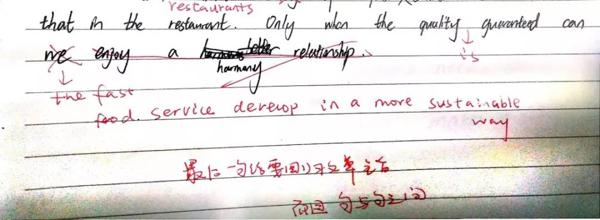 restaurants
that in the restaurant. Only when the quality guaranteed can
is
we enjoy a better relationship.
harmany
the fast
food service develop in a more sustainable
way
最后一句话要回归文章主旨
句与句之间